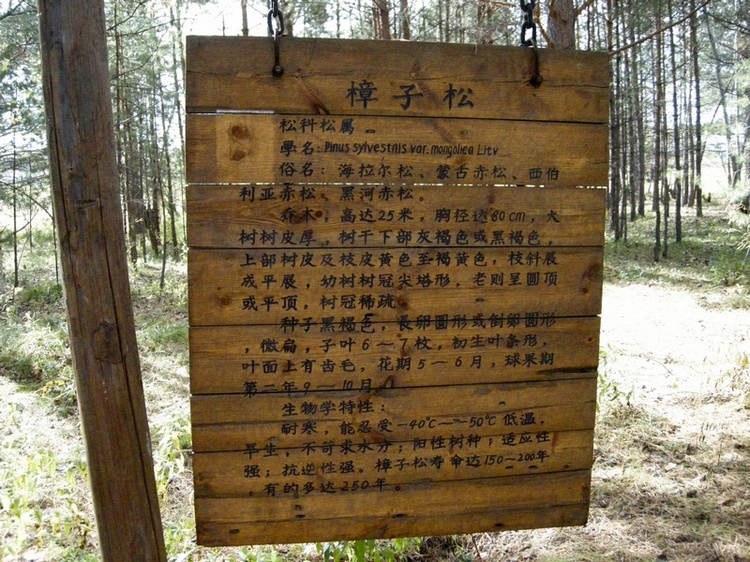 樟子松
松科松属
學名:Pinus sylvestnis var. mongolica Litv
俗名:海拉尔松、蒙古赤松、西伯
利亚赤松、黑河赤松。
乔木,高达25米,胸径达80cm,大
树树皮厚,树干下部灰褐色或黑褐色,
上部树皮及枝皮黄色至褐黄色,枝斜展
或平展,幼树树冠尖塔形,老则呈圆顶
或平顶,树冠稀疏。
种子黑褐色,長卵圆形或倒卵圆形
,微扁,子叶6~7枚,初生叶条形,
叶面上有齿毛,花期5-6月,球果期
第二年9-10月。
生物学特性:
耐寒,能忍受-40℃~-50℃低温,
旱生,不苛求水分;阳性树种;适应性
强;抗逆性强。樟子松寿命达150~200年
,有的多达250年。